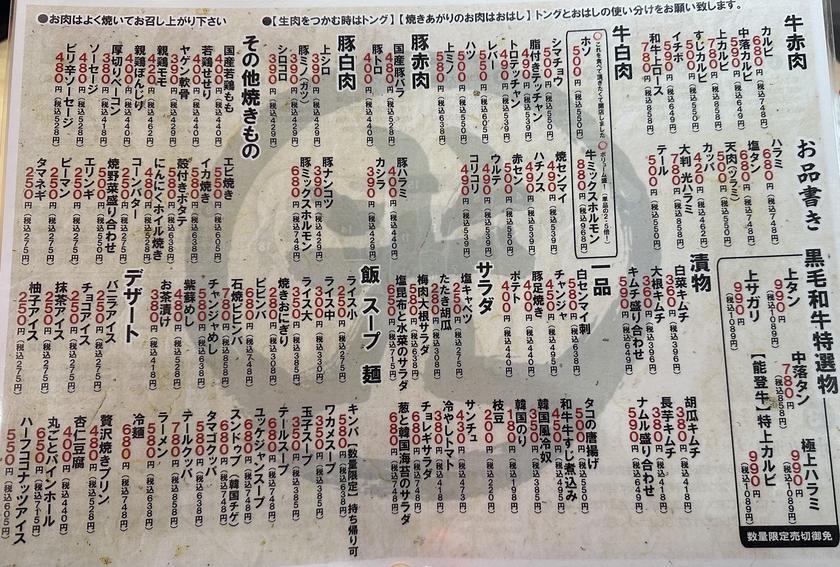 ●お肉はよく焼いてお召し上がり下さい
●【生肉をつかむ時はトング】【焼きあがりのお肉はおはし】トングとおはしの使い分けをお願い致します。
お品書き
黒毛和牛特選物
上タン
990円(税込1089円)
上サガリ
990円(税込1089円)
中落タン
780円(税込858円)
【能登牛】特上カルビ
990円
極上ハラミ
990円(税込1089円)
数量限定売切御免
牛赤肉
カルビ
680円(税込748円)
中落カルビ
590円(税込649円)
上カルビ
780円(税込858円)
すじカルビ
500円(税込550円)
イチボ
590円(税込649円)
和牛ロース
780円(税込858円)
ハラミ
680円(税込748円)
塩タン
680円(税込748円)
天肉(ツラミ)
500円(税込550円)
カッパ
420円(税込462円)
大判 光ハラミ
780円(税込858円)
テール
500円(税込550円)
牛白肉
ホソ
500円(税込550円)
牛ミックスホルモン
880円(税込968円)
シマチョウ
500円(税込550円)
脂付きテッチャン
490円(税込539円)
トロテッチャン
490円(税込539円)
レバー
550円(税込605円)
ハツ
500円(税込550円)
上ミノ
580円
焼センマイ
490円(税込539円)
ハチノス
490円(税込539円)
赤セン
500円(税込550円)
ウルテ
490円(税込539円)
コリコリ
490円(税込539円)
豚赤肉
国産豚バラ
480円(税込528円)
豚トロ
400円(税込440円)
豚ハラミ
400円(税込440円)
カシラ
390円(税込429円)
豚白肉
上シロ
390円(税込429円)
豚ミノ(ガツ)
390円(税込429円)
シロコロ
390円(税込429円)
豚ナンコツ
390円(税込429円)
豚ミックスホルモン
680円(税込748円)
その他焼きもの
国産若鶏もも
400円(税込440円)
若鶏せせり
400円(税込440円)
ヤゲン軟骨
390円(税込429円)
親鶏モモ
420円(税込462円)
親鶏ぼんじり
400円(税込440円)
厚切りベーコン
380円(税込418円)
ソーセージ
480円(税込528円)
ピリ辛ソーセージ
480円(税込528円)
エビ焼き
550円(税込605円)
イカ焼き
580円(税込638円)
殻付きホタテ
580円(税込638円)
にんにくホイル焼き
480円(税込528円)
コーンバター
250円(税込275円)
焼野菜盛り合わせ
500円(税込550円)
エリンギ
250円(税込275円)
ピーマン
250円(税込275円)
タマネギ
250円(税込275円)
漬物
白菜キムチ
360円(税込396円)
大根キムチ
360円(税込396円)
キムチ盛り合わせ
590円(税込649円)
胡瓜キムチ
380円(税込418円)
長芋キムチ
380円(税込418円)
ナムル盛り合わせ
500円(税込550円)
一品
白センマイ刺
580円(税込638円)
チャンジャ
450円(税込495円)
豚足焼き
400円(税込440円)
ポテト
400円(税込440円)
タコの唐揚げ
500円(税込550円)
和牛牛すじ煮込み
450円(税込495円)
韓国風冷奴
350円(税込385円)
韓国のり
180円(税込198円)
枝豆
200円(税込220円)
サラダ
塩キャベツ
250円(税込275円)
たたき胡瓜
280円(税込308円)
梅肉大根サラダ
580円(税込638円)
塩昆布と水菜のサラダ
650円(税込715円)
サンチュ
430円(税込473円)
冷やしトマト
380円(税込418円)
チョレギサラダ
680円(税込748円)
葱と韓国海苔のサラダ
680円(税込748円)
飯 スープ 麺
ライス小
250円(税込275円)
ライス中
300円(税込330円)
ライス大
350円(税込385円)
焼きおにぎり
280円(税込308円)
ビビンバ
680円(税込748円)
石焼ビビンバ
780円(税込858円)
チャンジャめし
580円(税込638円)
紫蘇めし
480円(税込528円)
お茶漬け
380円(税込418円)
キンパ【数量限定】持ち帰り可
580円(税込638円)
ワカメスープ
350円(税込385円)
玉子スープ
350円(税込385円)
テールスープ
680円(税込748円)
ユッケジャンスープ
680円(税込748円)
スンドゥブ(韓国チゲ)
680円(税込748円)
タマゴクッパ
580円(税込638円)
テールクッパ
780円(税込858円)
ラーメン
580円(税込638円)
冷麺
680円(税込748円)
デザート
バニラアイス
250円(税込275円)
チョコアイス
250円(税込275円)
抹茶アイス
250円(税込275円)
柚子アイス
250円(税込275円)
贅沢焼きプリン
480円(税込528円)
杏仁豆腐
400円(税込440円)
丸ごとパインホール
650円(税込715円)
ハーフココナッツアイス
550円(税込605円)